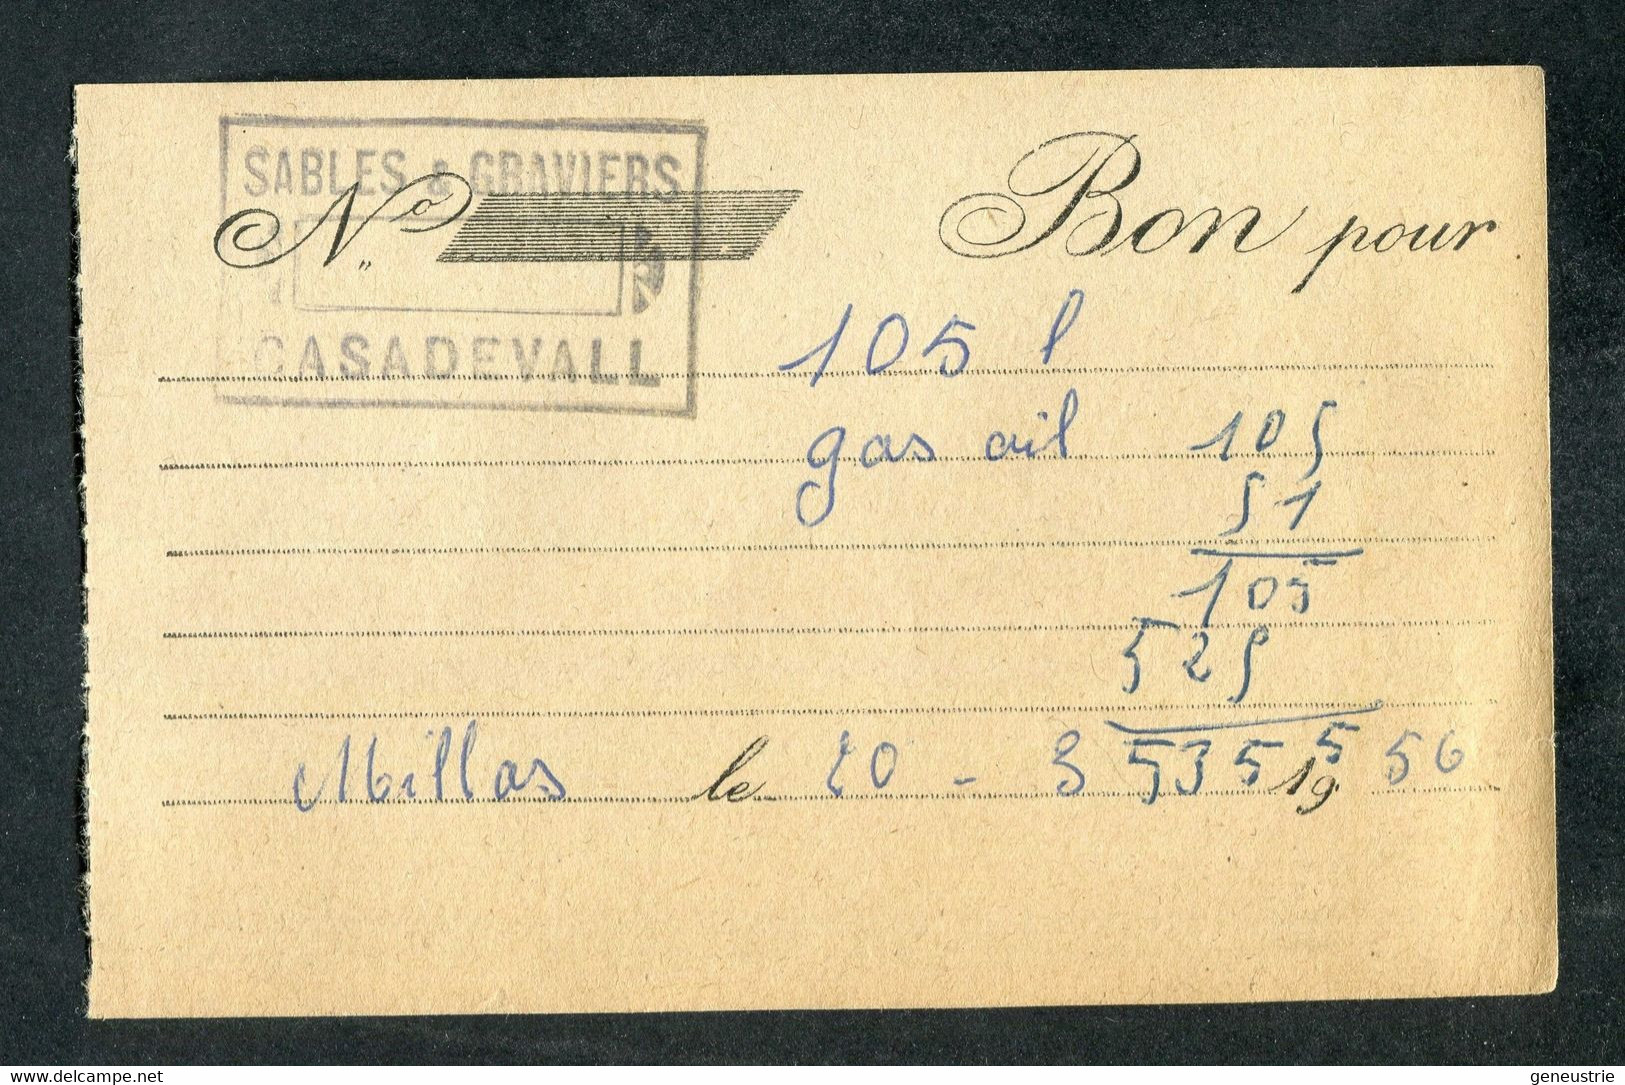 SABLES & GRAVIERS
CASADEVALL
Nº Bon pour
105 l
gas oil 105
51
105
525
5355
Millas le 20 - 3 1956
delcampe.net
geneustrie